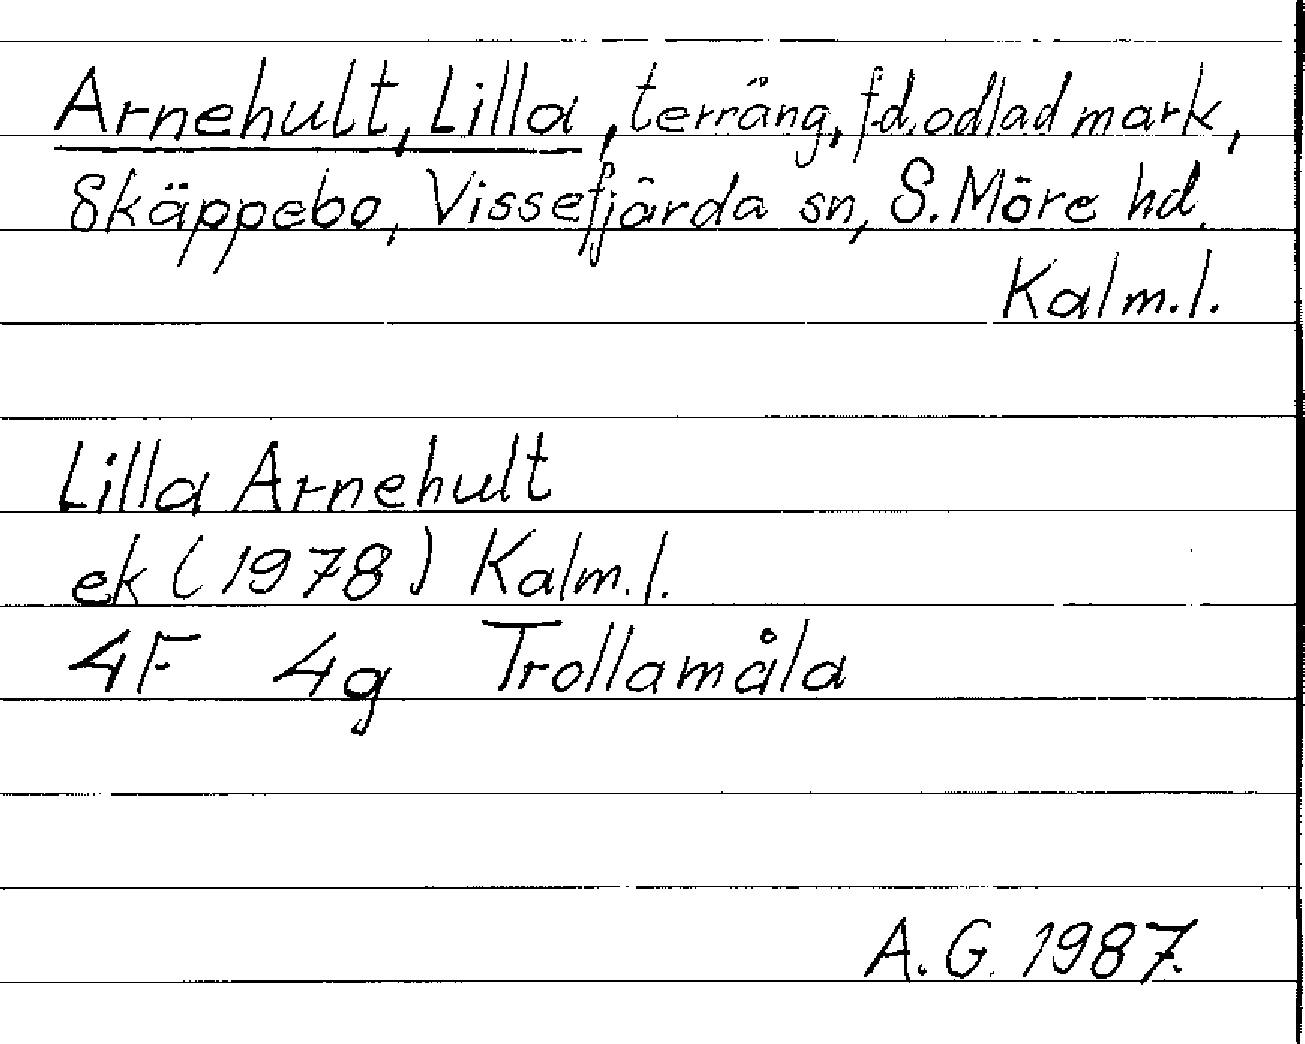 Arnehult, Lilla, terräng, f.d. odlad mark,
Skäppebo, Vissefjärda sn, S. Möre hd.
Kalm.l.
Lilla Arnehult
ek (1978) Kalm.l.
4F 4g Trollamåla
A.G. 1987.